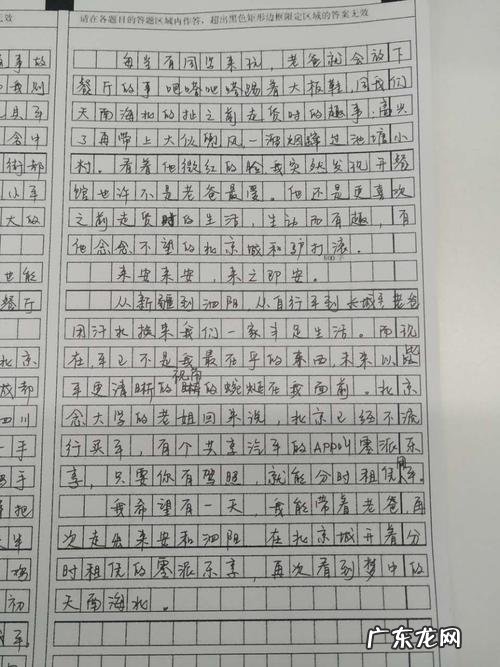 请在各题目的答题区域内作答，超出黑色矩形边框限定区域的答案无效
每当有同学来玩，老爸就会放下
餐厅的事吧嗒吧嗒踢着大板鞋，同我们
天南海北的扯之前走货时的趣事；高兴
了再带上大伙兜风一溜烟蹿过池塘小
村。看着他微红的脸我突然发现开餐
馆也许不是老爸最爱。他还是更喜欢
之前走货时的生活，生动而有趣，有
他念念不望的北京城和驴打滚。
800字
来安来安，来之即安。
从新疆到泗阴，从自行车到长城老爸
用汗水换来我们一家丰足生活。而现
在，车已不是我最在乎的东西，未来以
车更清晰的视角蜿蜒在我面前。北京
念大学的老姐回来说，北京已经不流
行买车，有个共享汽车的APP叫零派乐
享，只要你有驾照，就能分时租用车。
我希望有一天，我能带着老爸，再
次走出来安和泗阴 在北京城开着分
时租凭的零派乐享，再次看到梦中的
天南海北。
无效
事故
和我别
具车
含中
街都
从车
大的
也能
餐厅
北京
成都
四川
一手
手
把
大半
初
车。
广东龙网